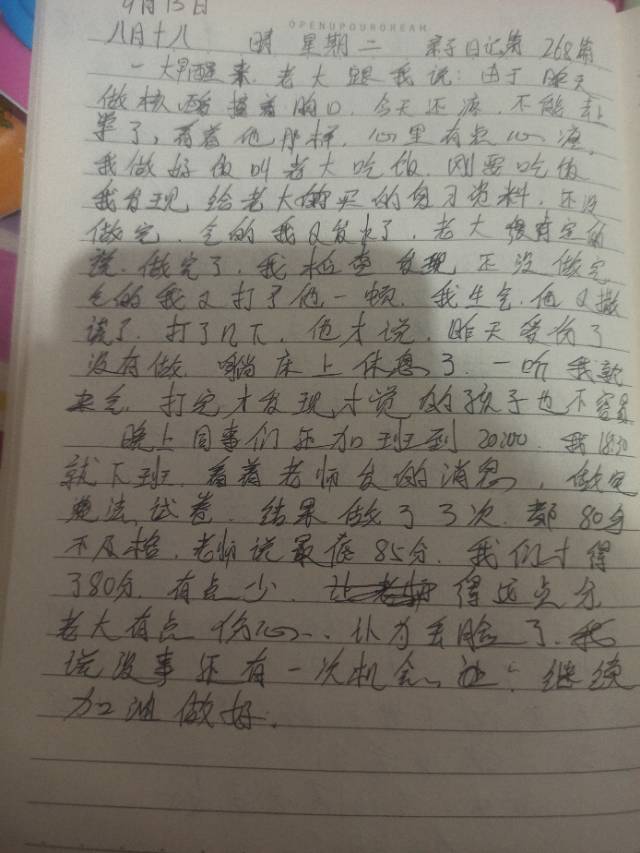 9月13日
OPENUPOURDREAM
八月十八 晴 星期二 亲子日记第268篇
一大早醒来,老大跟我说:由于昨天
做核酸捂着胸口,今天还凉,不能去上
学了,看着他那样,心里有点心凉,
我做好饭叫老大吃饭,刚要吃饭
我发现给老大买的复习资料,还没
做完,气的我又发火了,老大很肯定的
说,做完了,我检查发现还没做完
气的我又打了他一顿,我生气他又撒
谎了,打了几下,他才说,昨天受伤了
没有做,躺床上休息了,一听我就
气,打完才发现,才觉的孩子也不容易
晚上同事们还加班到20:00,我18:30
就下班,看着老师发的消息,做完
法试卷,结果做了3次,都80分
不及格,老师说最低85分,我们才得
了80分,有点少,得这点分
老大有点伤心、认为丢脸了,我
说没事还有一次机会,继续
加油做好.